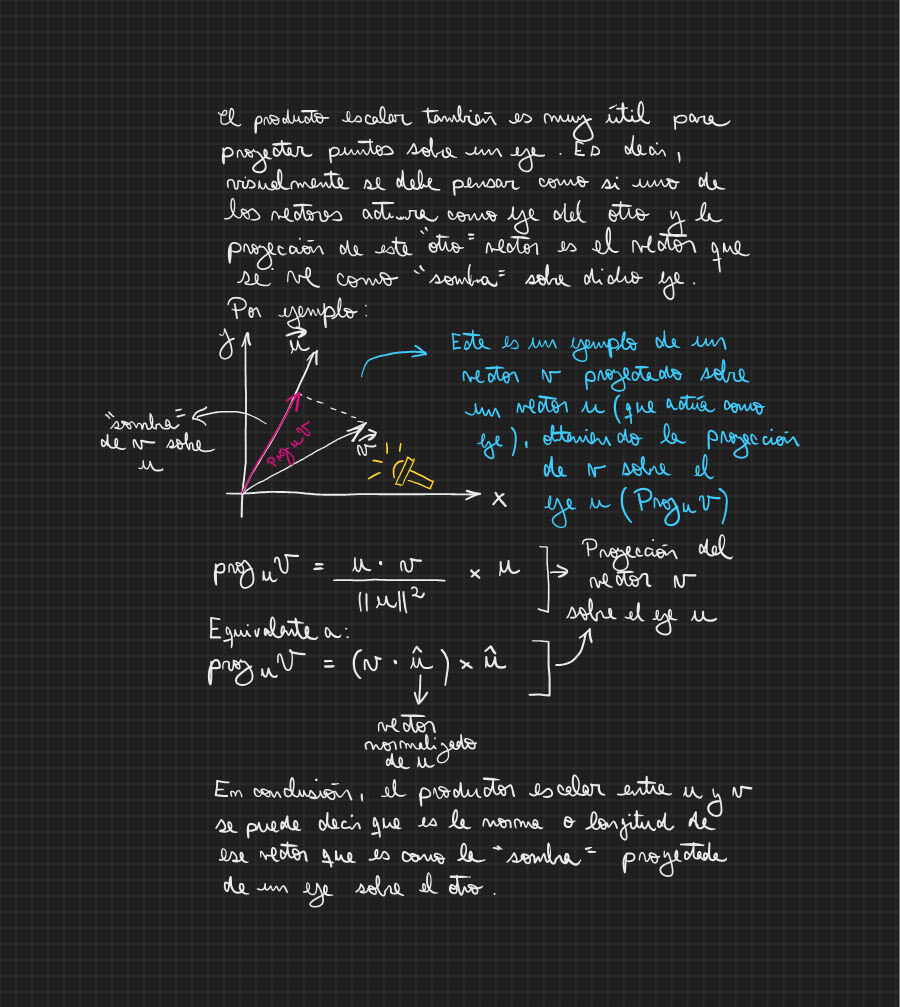 El producto escalar también es muy útil para
proyectar puntos sobre un eje. Es decir,
visualmente se debe pensar como si uno de
los vectores actuara como eje del otro y la
proyección de este "otro" vector es el vector que
se ve como "sombra" sobre dicho eje.
Por ejemplo:
y
u
Este es un ejemplo de un
vector v proyectado sobre
un vector u (que actúa como
eje), obteniendo la proyección
de v sobre el
eje u (Proy u v)
"sombra"
de v sobre
u
proy u v
v
x
proy u v = u · v / ||u||² × u
Proyección del
vector v
sobre el eje u
Equivalente a:
proy u v = (v · û) × û
vector
normalizado
de u
En conclusión, el productor escalar entre u y v
se puede decir que es la norma o longitud de
ese vector que es como la "sombra" proyectada
de un eje sobre el otro.